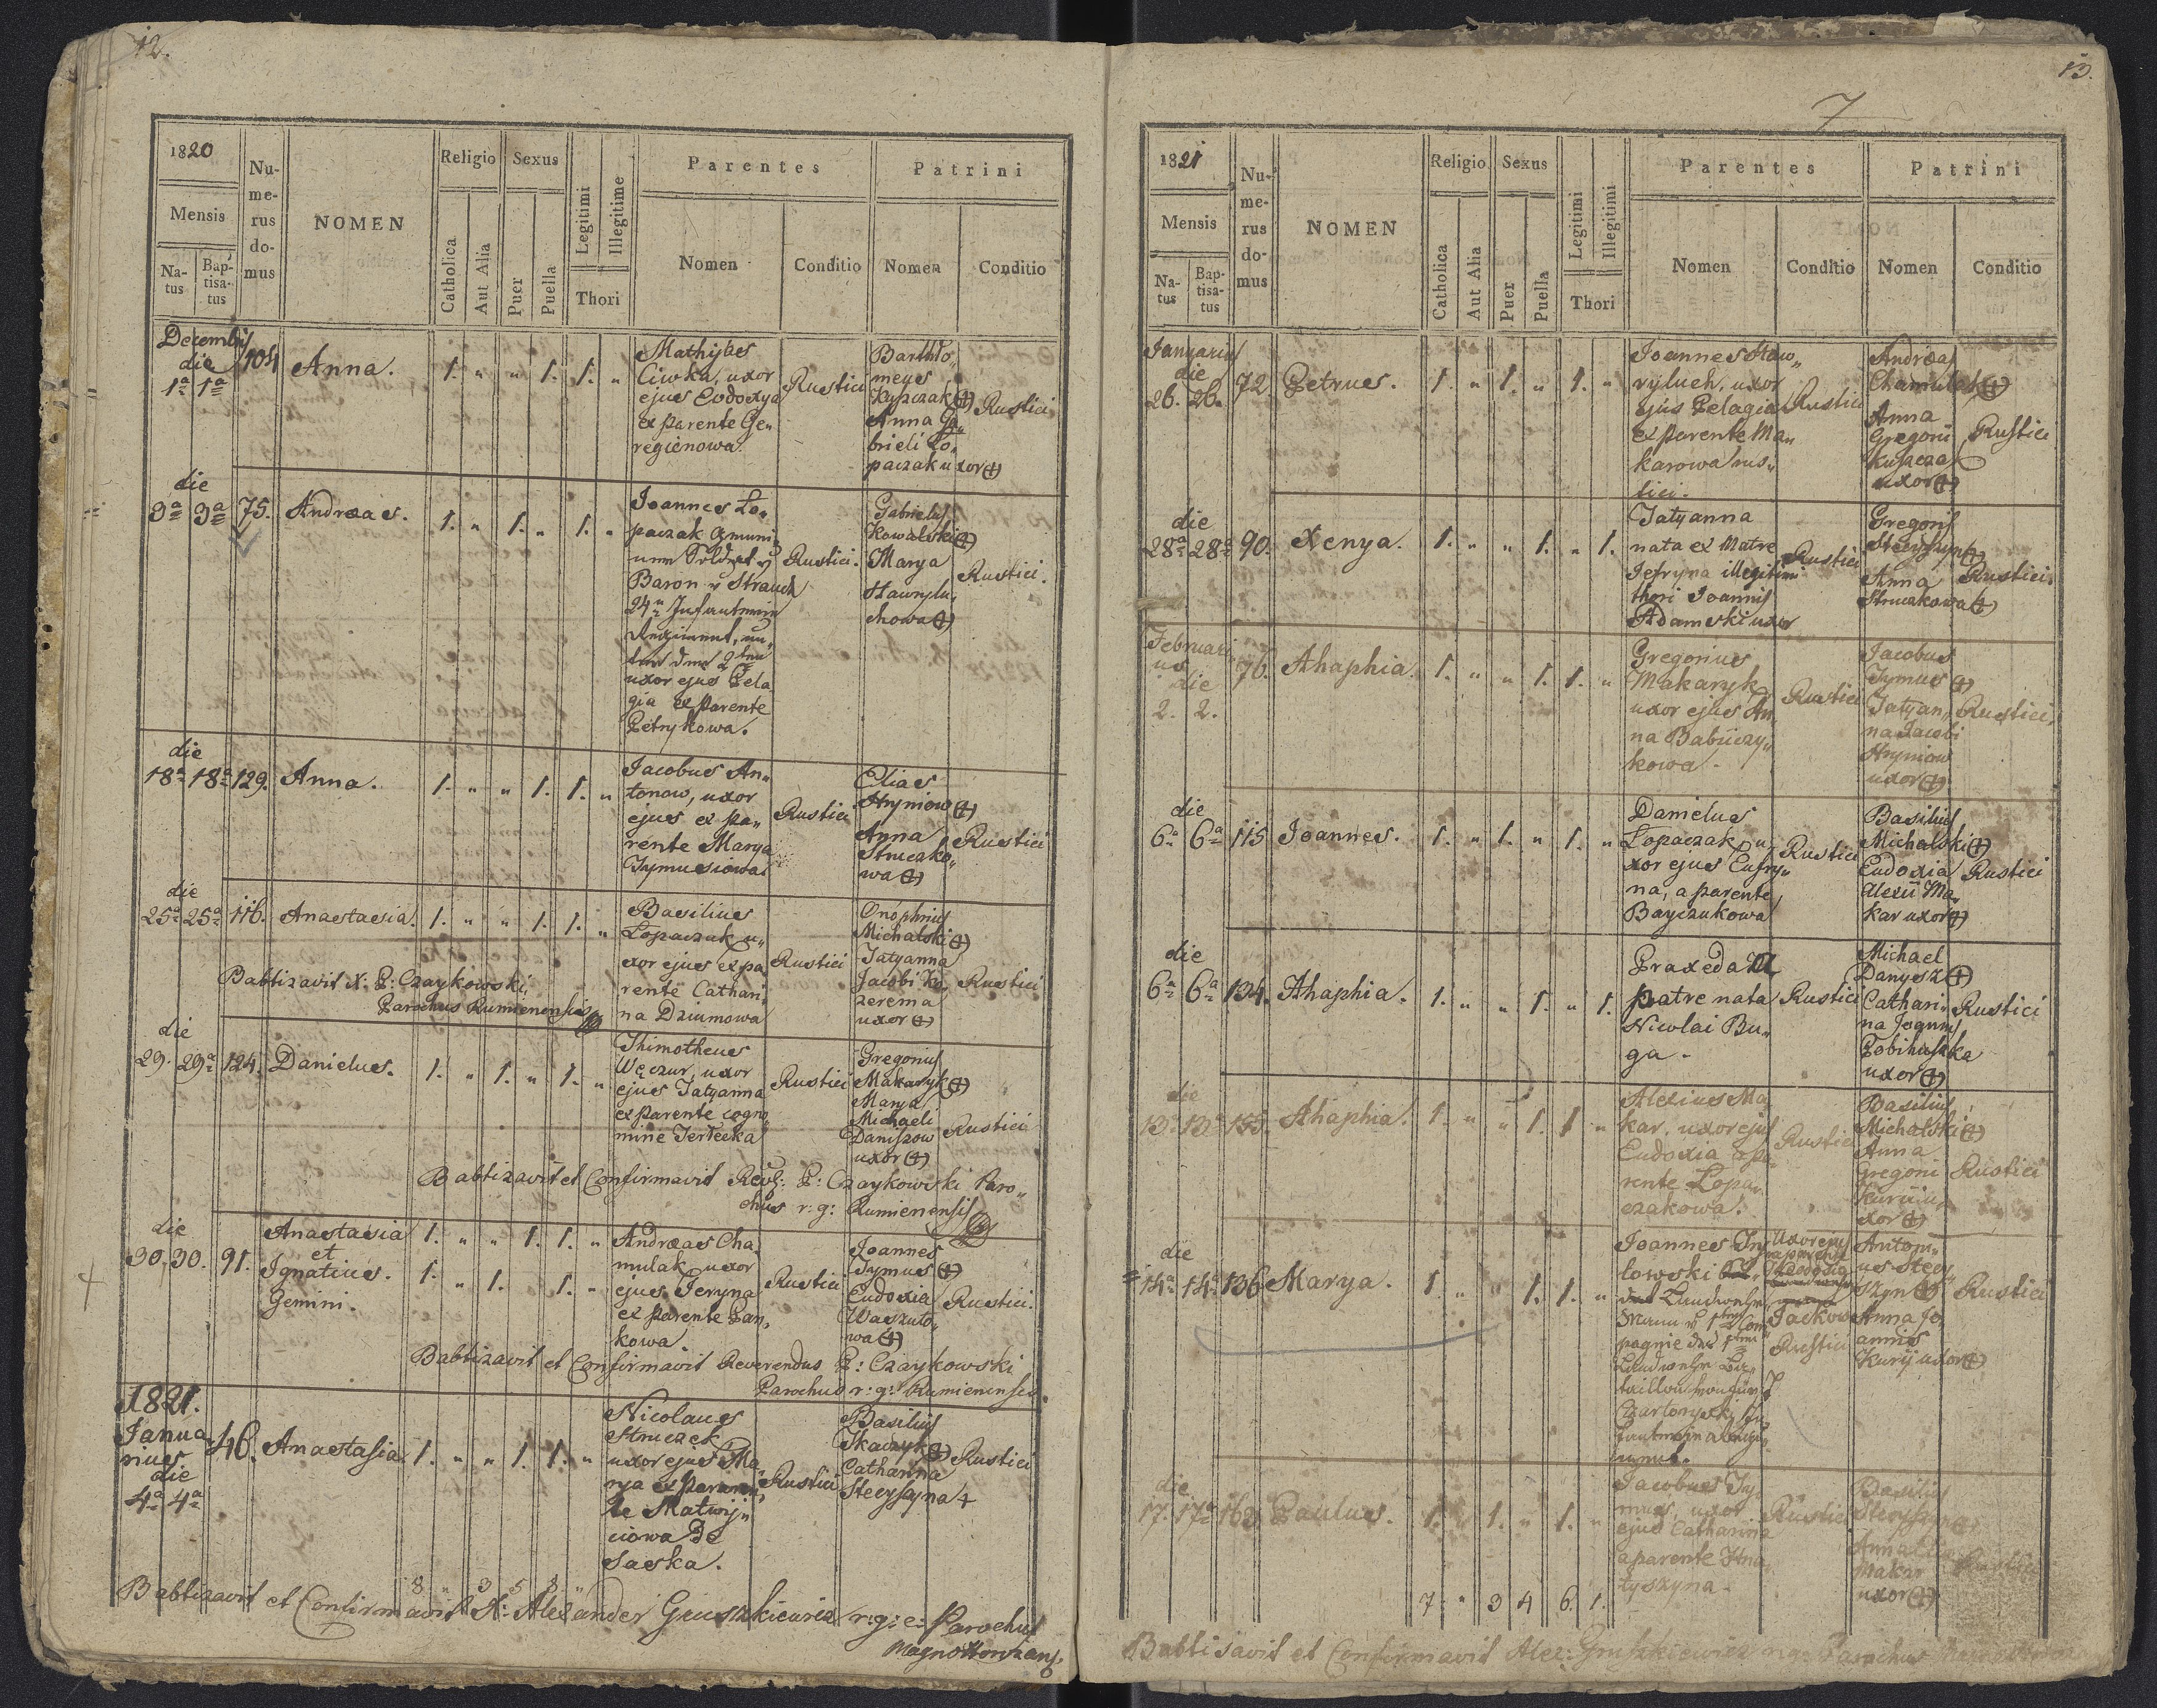 12.
1820
Mensis
Na-
tus
Bap-
tisa-
tus
Nu-
me-
rus
do-
mus
NOMEN
Religio
Catholica
Aut Alia
Sexus
Puer
Puella
Legitimi
Illegitime
Thori
Parentes
Nomen
Conditio
Patrini
Nomen
Conditio
Decembris
die
1a 1a 104 Anna. 1. " " 1. 1. "
Ciwka, uxor
ejus Eudoxya
ex parente Ge„
regienowa.
Rustici
Bartho„
meus
Kuszczak (+)
Anna Ga„
brieli Lo„
paczak uxor (+)
Rustici
die
3a 3a 75. Andreas. 1. " 1. " 1. "
Joannes Lo„
paczak
Baron v Strauch
24
uxor ejus Pela
gia ex parente
Petrykowa.
Rustici.
Gabrielus
Kowalski (+)
Marya
Hawrylu„
chowa (+)
Rustici.
die
18a 18a 129. Anna. 1. " " 1. 1. "
Jacobus An„
tonow, uxor
ejus ex pa„
rente Marya
Tymusiowa
Rustici
Elias
Hryniow (+)
Anna
Struczko„
wa (+)
Rustici
die
25a 25a 116. Anastasia. 1. " " 1. 1. "
Basilius
Lopaczak u„
xor ejus ex pa
rente Cathari„
na Dziumowa
Rustici
Onophrius
Michalski (+)
Tatyanna
Jacobi Ko„
zerema
uxor (+)
Rustici
Babtizavit X. P: Czaykowski,
Parochus Rumienensis
die
29. 29a 124. Danielus. 1. " 1. " 1. "
Thimotheus
Węczur, uxor
ejus Tatyanna
ex parente cogno
mine Terlecka
Rustici
Gregorius
Makaryk (+)
Marya
Michaeli
Daniszow
uxor (+)
Rustici
Babtizavit et Confirmavit Revd: P: Czaykowski Paro„
chus r: g: Rumienensis
die
30. 30. 91. Anastasia 1. " " 1. 1. "
et
Ignatius. 1. " 1. 1. "
Gemini.
Andreas Cha„
mulak, uxor
ejus Feryna
ex parente Pan„
kowa.
Rustici
Joannes
Tymus (+)
Eudoxia
Waszuto„
wa (+)
Rustici.
Babtizavit et Confirmavit Reverendus P: Czaykowski
Parochus r: g: Rumienensis.
1821.
Janua
rius
die
4a 4a 46. Anastasia 1. " " 1. 1. "
Nicolaus
Struczek
uxor ejus Ma„
rya ex paren„
te Matwij„
ciowa De
Saska.
Rustici
Basilius
Tkaczyk (+)
Catharina
Stecyszyna +
Rustici
8 " 3 5 8 "
Babtizavit et Confirmavit X: Alexander Gruszkiewicz r: g: c: Parochus

13.
7
1821
Mensis
Na-
tus
Bap-
tisa-
tus
Nu-
me-
rus
do-
mus
NOMEN
Religio
Catholica
Aut Alia
Sexus
Puer
Puella
Legitimi
Illegitimi
Thori
Parentes
Nomen
Conditio
Patrini
Nomen
Conditio
Januarius
die
26. 26. 72. Petrus. 1. " 1. " 1. "
Joannes Haw„
ryluch, uxor
ejus Pelagia
ex parente Ma„
karowa rus„
tici.
Rustici
Andreas
Chamulak (+)
Anna
Gregorii
Kuszcza
uxor (+)
Rustici
die
28a 28a 90. Xenya. 1. " " 1. " 1.
Tatyanna
nata ex Matre
Jefryna illegitimi
thori Joannis
Adamski uxor
Rustici
Gregoris
Stecyszyn (+)
Anna
Struczkowa (+)
Rustici.
Februari
us
die
2. 2. 76. Ahaphia. 1. " " 1. 1. "
Gregorius
Makaryk
uxor ejus An„
na Babiiczy„
kowa.
Rustici
Jacobus
Tymus (+)
Tatyan„
na Jacobi
Hryniow
uxor (+)
Rustici.
die
6a 6a 115 Joannes. 1. " 1. " 1. "
Danielus
Lopaczak, u„
xor ejus Eufry„
na, a parente
Bayczukowa
Rustici
Basilius
Michalski (+)
Eudoxia
Alexii Ma„
kar uxor (+)
Rustici
die
6a 6a 134. Ahaphia. 1. " " 1. " 1.
Praxeda
patre nata
Nicolai Bu„
ga.
Rustici
Michael
Danysz (+)
Cathari„
na Joannis
Pobihuszka
uxor (+)
Rustici
die
13a 13a 155. Ahaphia. 1. " " 1. 1. "
Alexius Ma„
kar, uxor ejus
Eudoxia a pa„
rente Lopa„
czakowa.
Rustici
Basilius
Michalski (+)
Anna
Gregorii
Kurii u„
xor (+)
Rustici
die
14a 14a 136 Marya. 1. " " 1. 1. "
Joannes
lowski
Landwehr
Rustici
Antoni„
us Stecy„
szyn (+)
Anna Jo„
annis
Kurij uxor (+)
Rustici
die
17. 17a 163 Paulus. 1. " 1. " 1. "
Jacobus Ty„
mus, uxor
ejus Catharina
a parente Hna„
tyszyna.
Rustici
Basilius
Stecyszyn (+)
Anna
Makar
uxor (+)
Rustici
7 " 3 4 6. 1.
Babtisavit et Confirmavit Alex: Gruszkiewicz r: g: Parochus